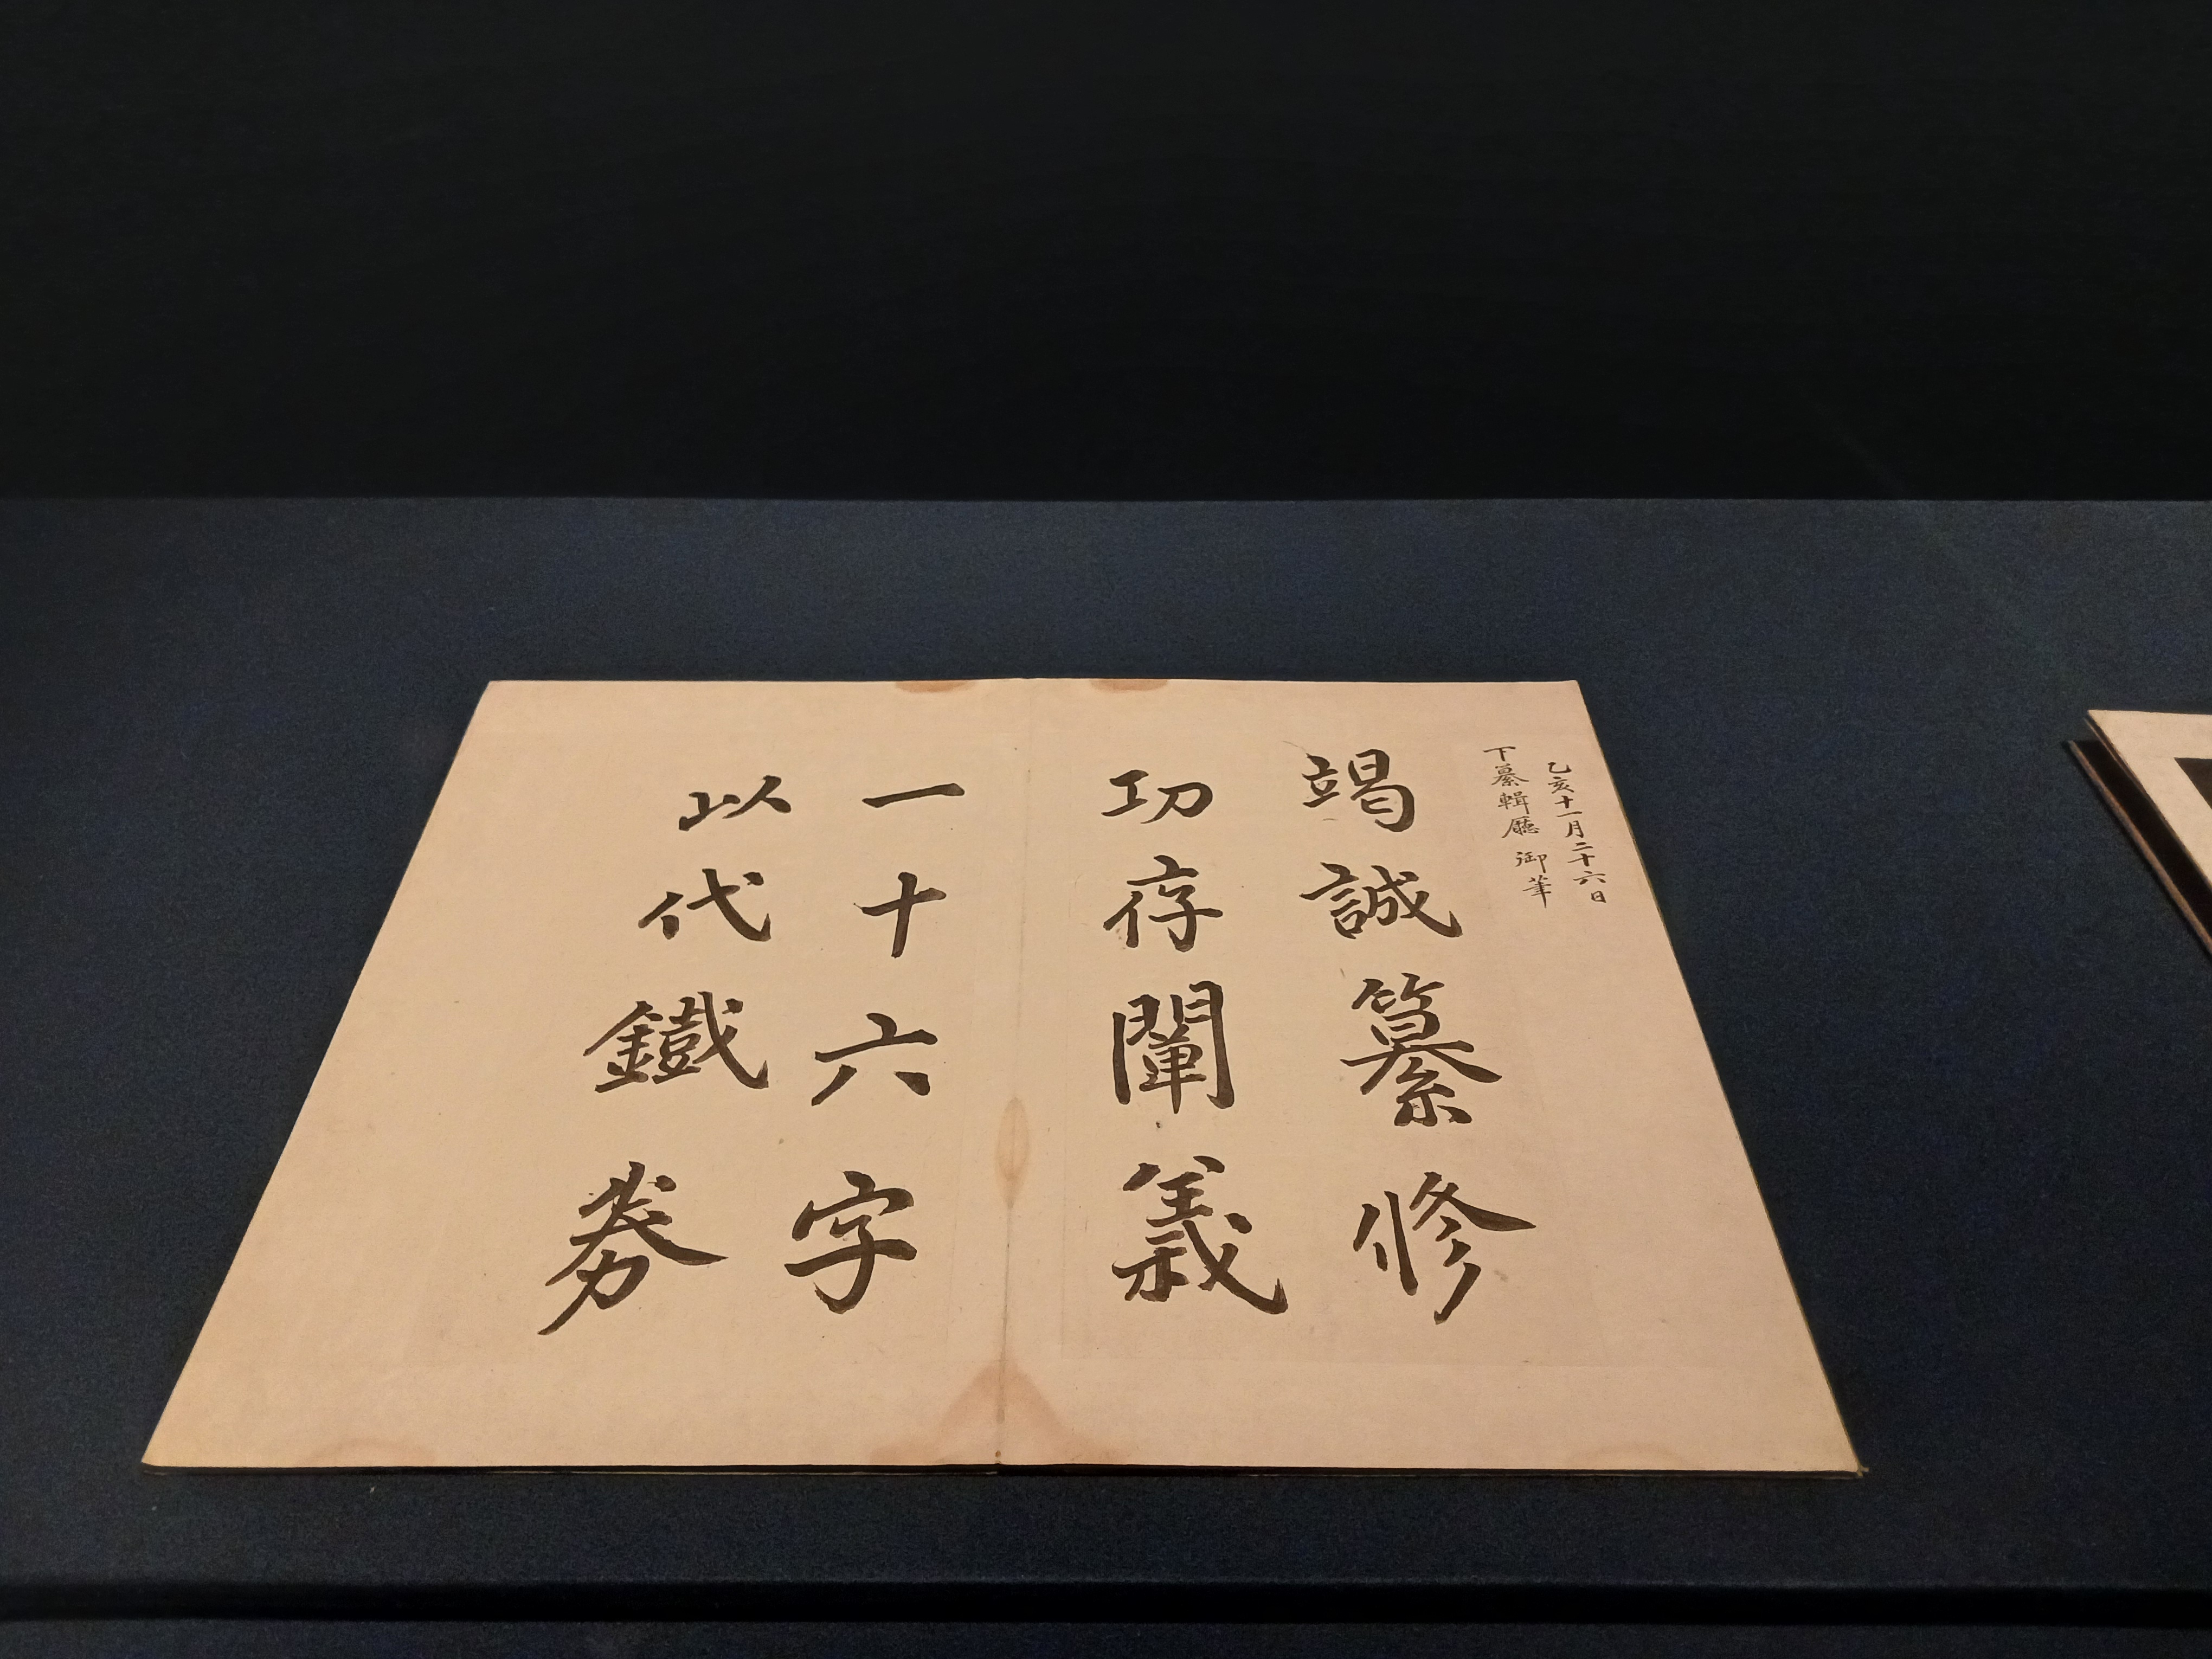 乙亥十一月二十六日
下纂輯廳 御筆
竭誠纂修
功存闡義
一十六字
以代鐵券